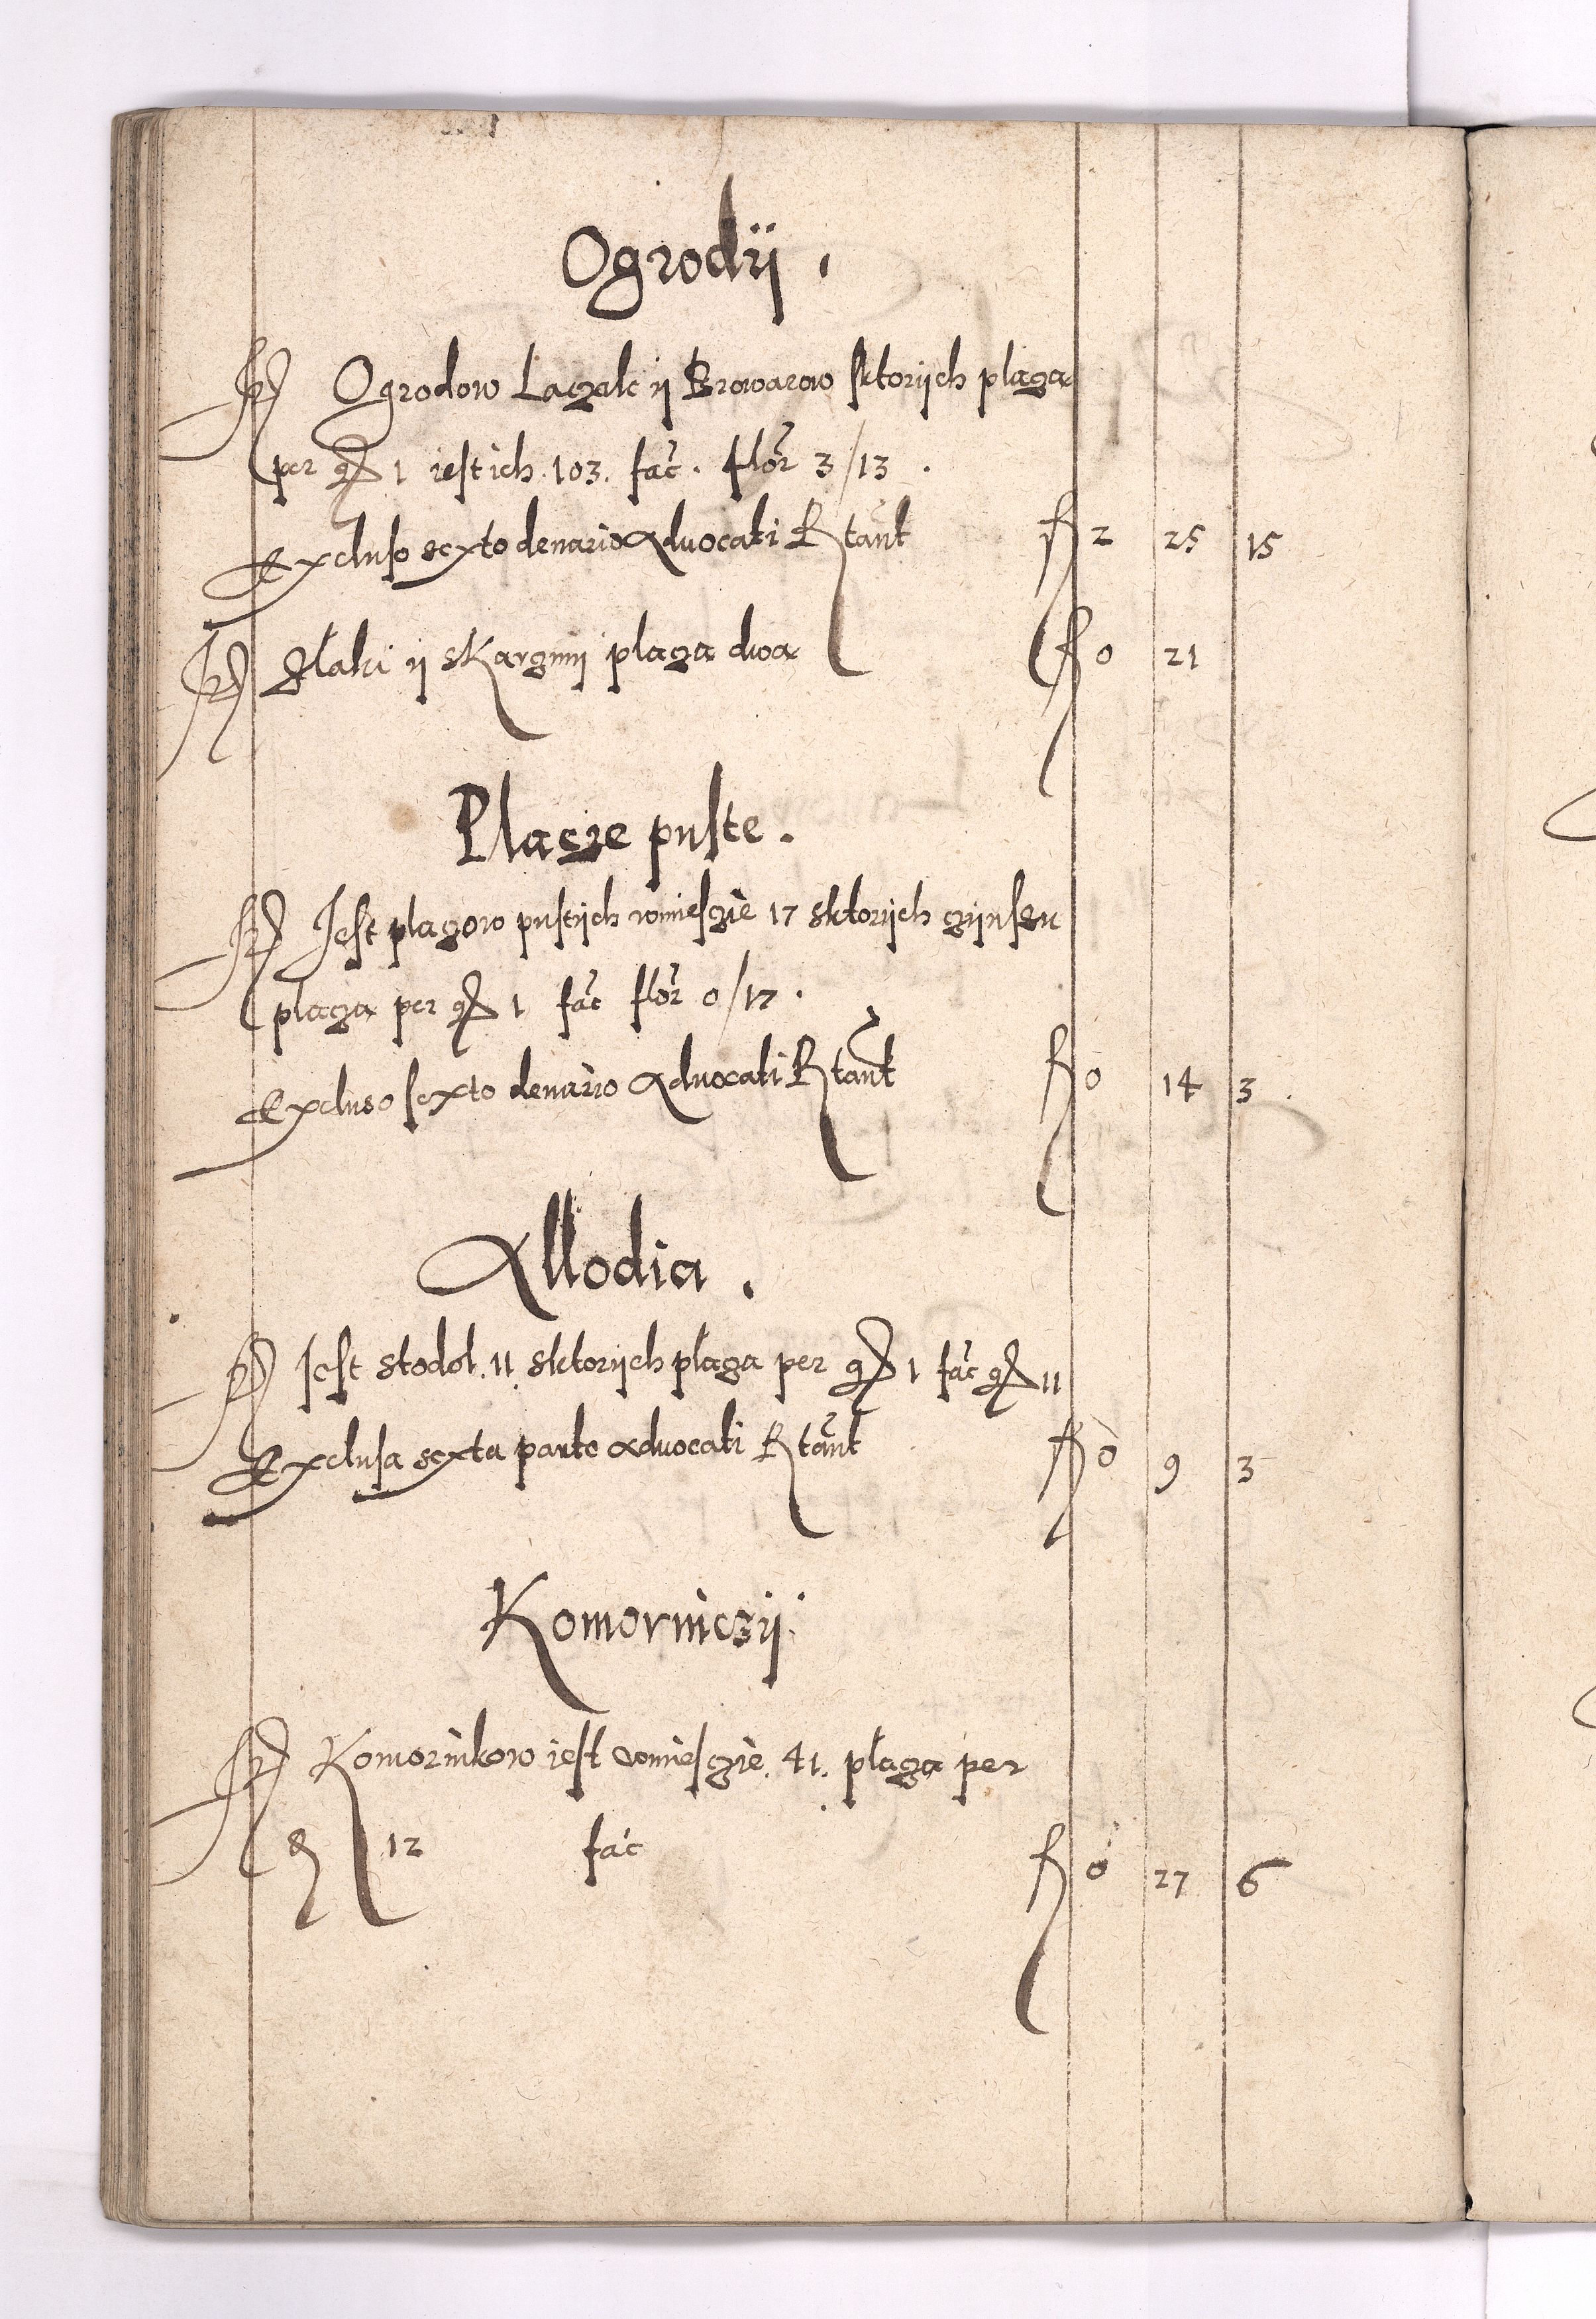 Ogrodÿ.
It Ogrodow Lagzek ÿ Browarow sktorÿch plaga
per gr 1 iestich 103. fac. flor 3/13.
Excluso sexto denario Aduocati Rtant f 2 25 15
It ÿ skargmÿ plaga dwa f 0 21
Placze puste.
It Jest plagow pustÿch wmiesgie 17 sktorÿch gÿnszu
plaga per gr 1 fac flor 0/17.
Excluso sexto denario Aduocati Rtant f 0 14 3.
Allodia.
It Jest stodol. 11 sktorÿch plaga per gr 1 fac gr 11
Exclusa sexta parte aduocati Rtant f 0 9 3
Komorniczÿ.
It Komornikow iest wmiesgie. 41. plaga per
12 fac f 0 27 6